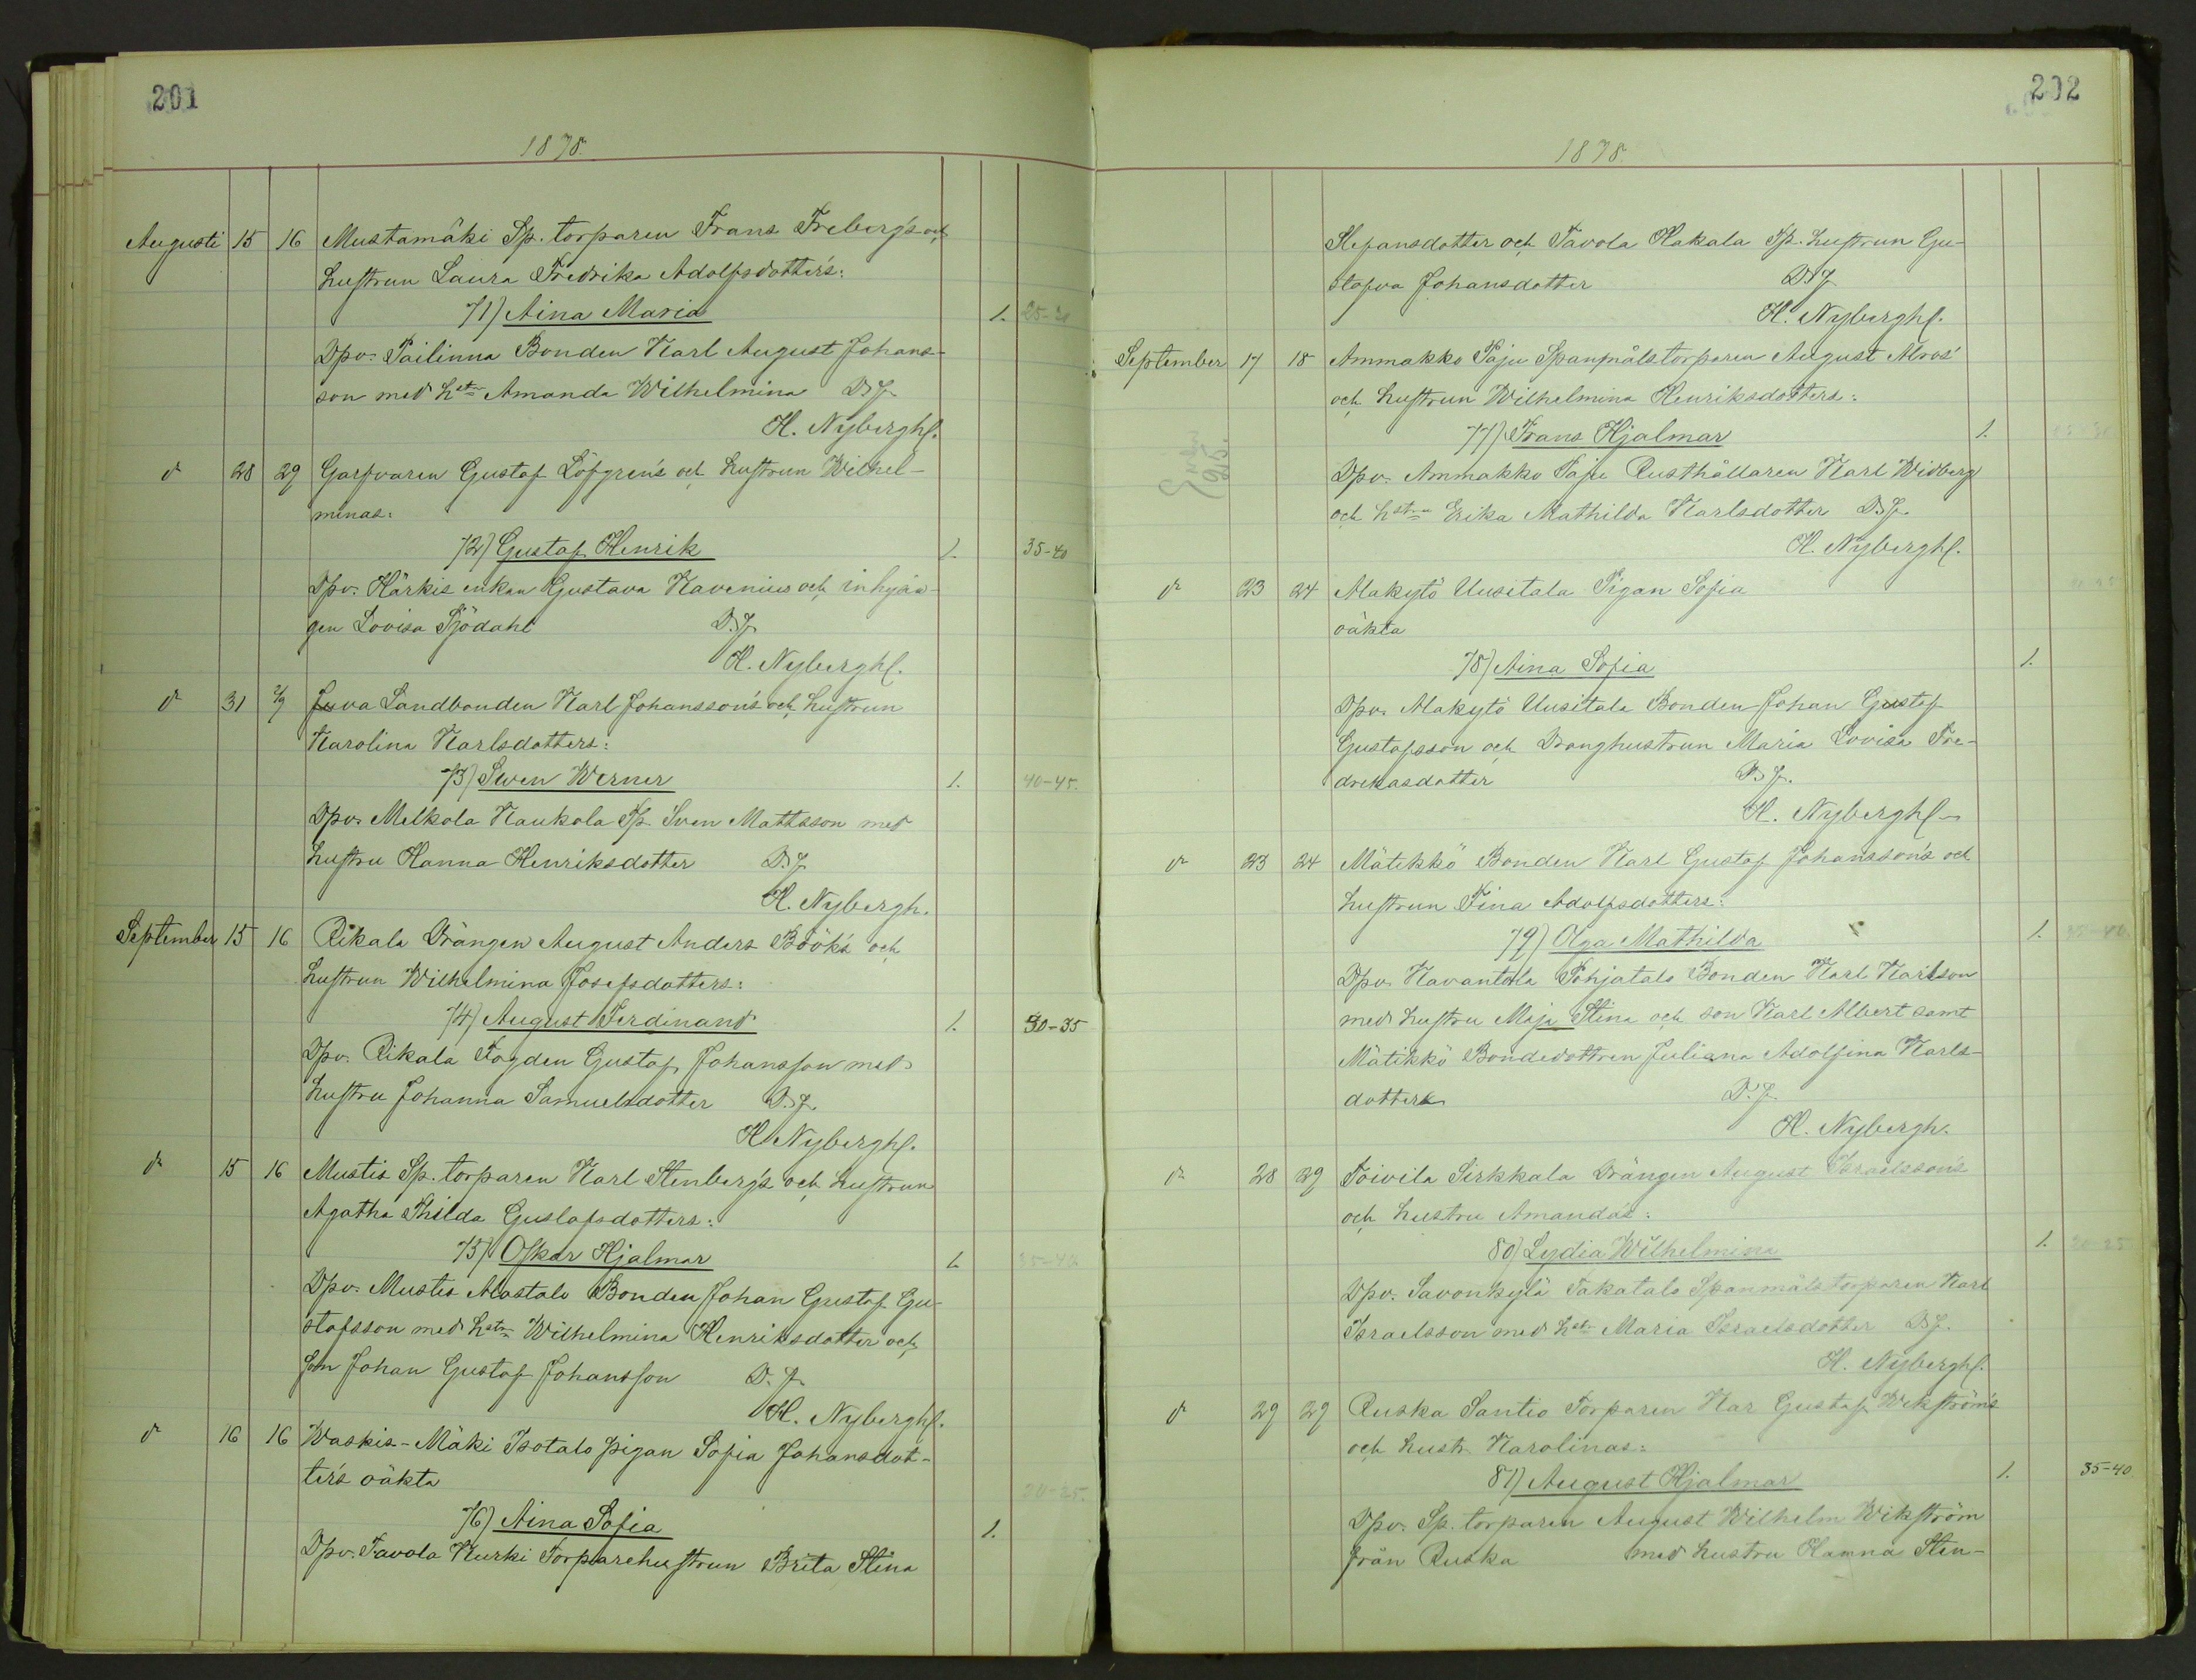 201
1878.
Augusti 15 16 Mustamäki Sp. torparen Frans Freberg's och
hustrun Laura Fredrika Adolfsdotter's:
71) Aina Maria 1. 25-30
Dpv. Pailinna Bonden Karl August Johans-
son med hstr Amanda Wilhelmina D.J.
H. Nybergh.
d 28 29 Garfvaren Gustaf Löfgren's och hustrun Wilhel-
minas:
72) Gustaf Henrik 1. 35-40
Dpv. Härkis enkan Gustava Kavenius och inhysin-
gen Lovisa Sjödahl D.J.
H. Nybergh.
d 31 2/9 Juva Landbonden Karl Johansson's och hustrun
Karolina Karlsdotters:
73) Swen Werner 1. 40-45.
Dpv. Melkola Kaukola Sp. Sven Mattsson med
hustru Hanna Henriksdotter D.J.
H. Nybergh.
September 15 16 Rikala Drängen August Anders Böök's och
hustrun Wilhelmina Josefsdotters:
74) August Ferdinand 1. 30-35
Dpv. Rikala Fogden Gustaf Johansson med
hustru Johanna Samuelsdotter D.J.
H. Nybergh.
d 15 16 Mustis Sp. torparen Karl Stenberg's och hustrun
Agatha Thilda Gustafsdotters:
75) Oskar Hjalmar 1. 35-40
Dpv. Mustis Alastalo Bonden Johan Gustaf Gu-
stafsson med hstr Wilhelmina Henriksdotter och
son Johan Gustaf Johansson D.J.
H. Nybergh.
d 16 16 Waskis-Mäki Isotalo pigan Sofia Johansdot-
ter's oäkta 20-25.
76) Aina Sofia 1.
Dpv. Tavola Kurki Torparehustrun Brita Stina
202
1878.
Stefansdotter och Tavola Hakala Sp. hustrun Gu-
stafva Johansdotter D.J.
H. Nybergh.
September 17 18 Ammakko Paju Spanmålstorparen August Alros'
och hustrun Wilhelmina Henriksdotters:
77) Frans Hjalmar 1.
Dpv. Ammakko Paju Rusthållaren Karl Widberg
och hstru Erika Mathilda Karlsdotter D.J.
H. Nybergh.
d 23 24 Alakytö Uusitala Pigan Sofia
oäkta
78) Aina Sofia 1.
Dpv. Alakytö Uusitala Bonden Johan Gustaf
Gustafsson och Dränghustrun Maria Lovisa Fre-
driksdotter D.J.
H. Nybergh.
d 23 24 Mätikkö Bonden Karl Gustaf Johansson's och
hustrun Fina Adolfsdotters:
79) Olga Mathilda 1.
Dpv. Kavantola Pohjatalo Bonden Karl Karlsson
med hustru Maja Stina och son Karl Albert samt
Mätikkö Bondedottren Juliana Adolfina Karls-
dotter D.J.
H. Nybergh.
d 28 29 Toivila Sirkkala Drängen August Israelsson's
och hustru Amanda's:
80) Lydia Wilhelmina 1. 20-25
Dpv. Savonkylä Takatalo Spanmålstorparen Karl
Israelsson med hst Maria Israelsdotter D.J.
H. Nybergh.
d 29 29 Ruska Santio Torparen Kar Gustaf Wikström's
och hustr. Karolinas:
81) August Hjalmar 1. 35-40
Dpv. Sp. torparen August Wilhelm Wikström
från Ruska med hustru Hanna Sten-